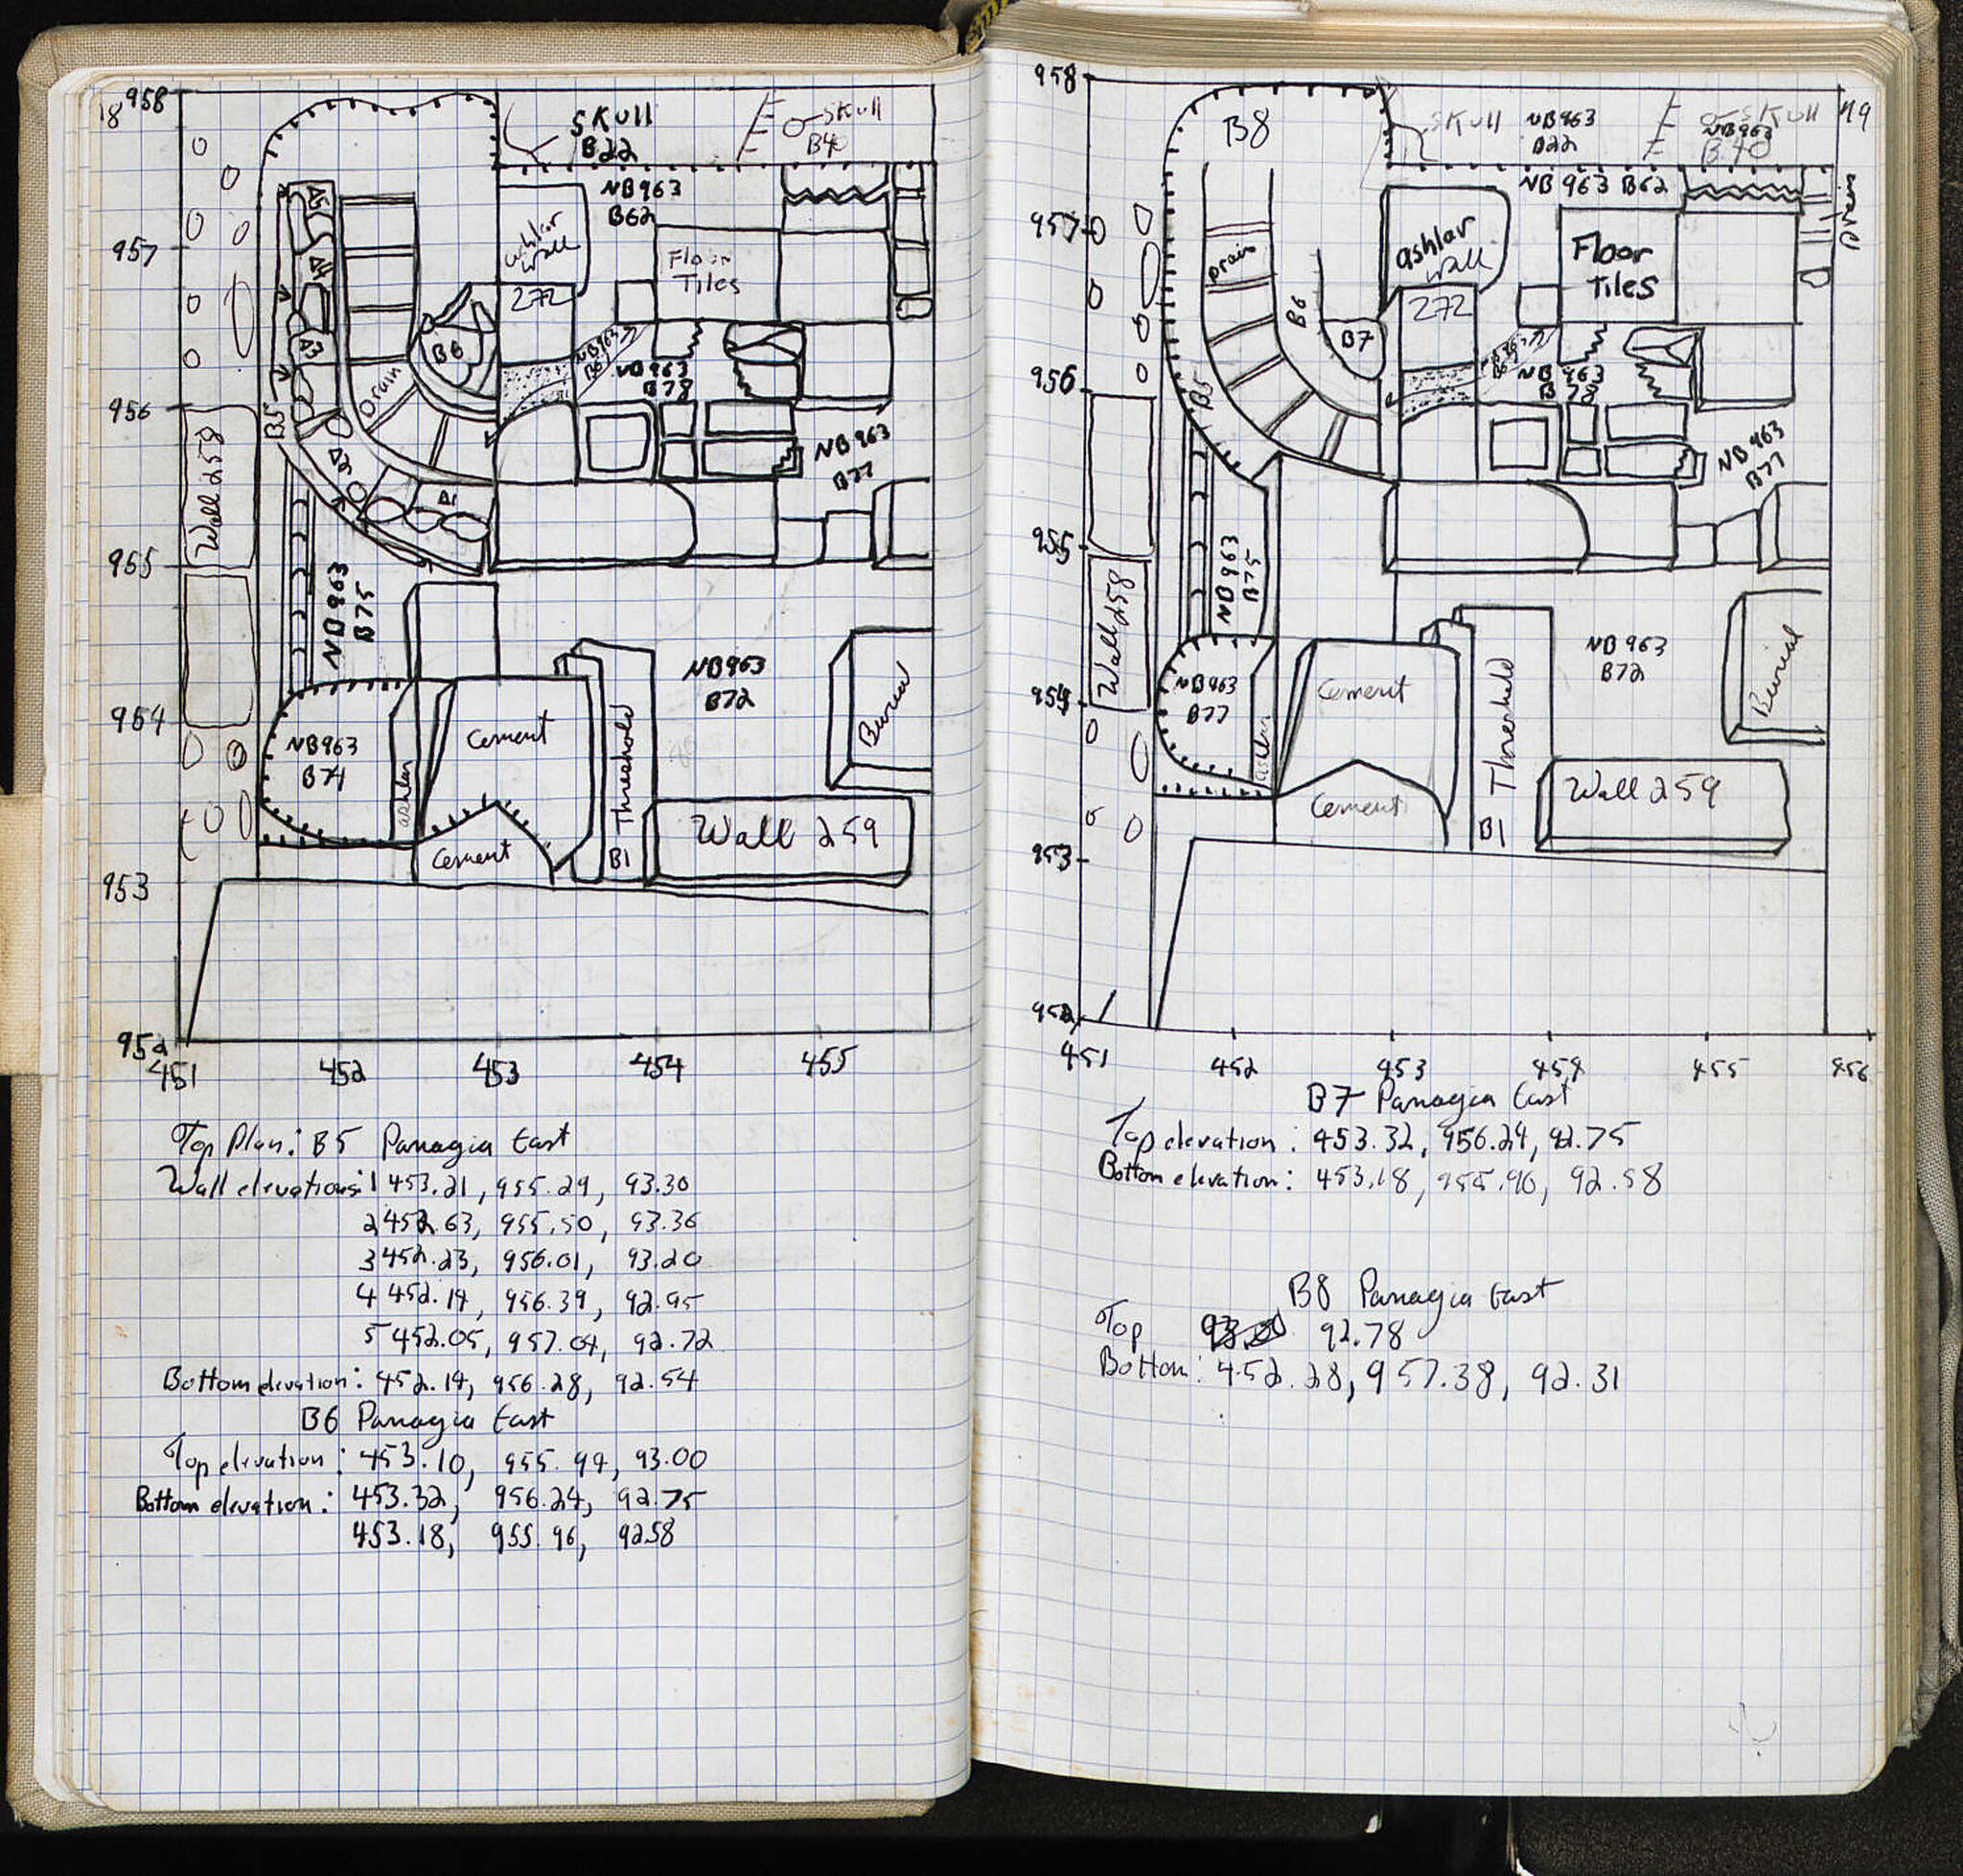 18
958
957
956
965
964
953
952
451
452
453
454
455
SKull
B22
SKull
B40
NB963
B62
ashlar
wall
272
Floor
Tiles
Δ5
Δ4
Δ3
Δ2
Δ1
B6
Drain
B5
NB963
NB963
B78
NB963
B77
Wall 258
NB963
B75
NB963
B74
ashlar
Cement
Cement
Threshold
B1
NB963
B72
Burial
Wall 259
Top Plan: B5 Panagia East
Wall elevations: 1 453.21, 955.29, 93.30
2 452.63, 955.50, 93.36
3 452.23, 956.01, 93.20
4 452.14, 956.39, 92.95
5 452.05, 957.04, 92.72
Bottom elevation: 452.14, 956.28, 92.54
B6 Panagia East
Top elevation: 453.10, 955.94, 93.00
Bottom elevation: 453.32, 956.24, 92.75
453.18, 955.96, 92.58
19
958
957
956
955
954
953
952
451
452
453
454
455
456
B8
SKull
NB963
B22
SKull
NB963
B40
NB963 B62
Drain
Drain
B6
B7
B5
ashlar
wall
272
Floor
Tiles
NB963
B78
NB963
B77
Wall 258
NB963
B75
NB963
B77
ashlar
Cement
Cement
Threshold
B1
NB963
B72
Burial
Wall 259
B7 Panagia East
Top elevation: 453.32, 956.24, 92.75
Bottom elevation: 453.18, 955.96, 92.58
B8 Panagia East
Top 93.00 92.78
Bottom: 452.28, 957.38, 92.31